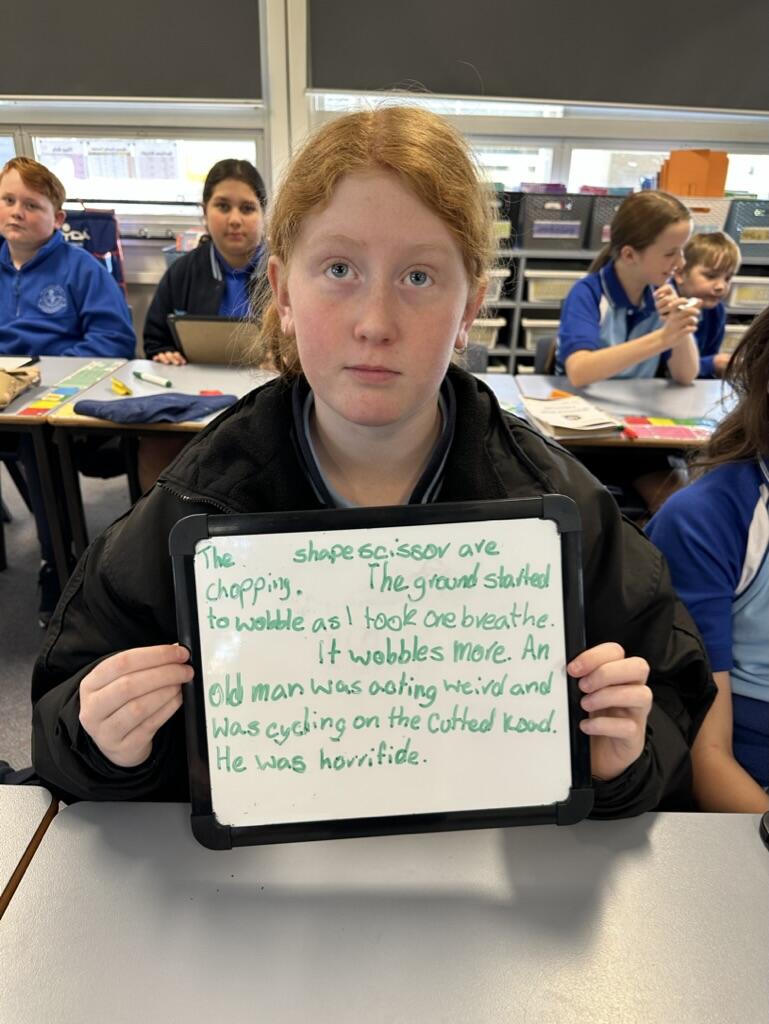 The shape scissor are
chopping. The ground started
to wobble as I took one breathe.
It wobbles more. An
old man was acting weird and
was cycling on the cutted Road.
He was horrifide.